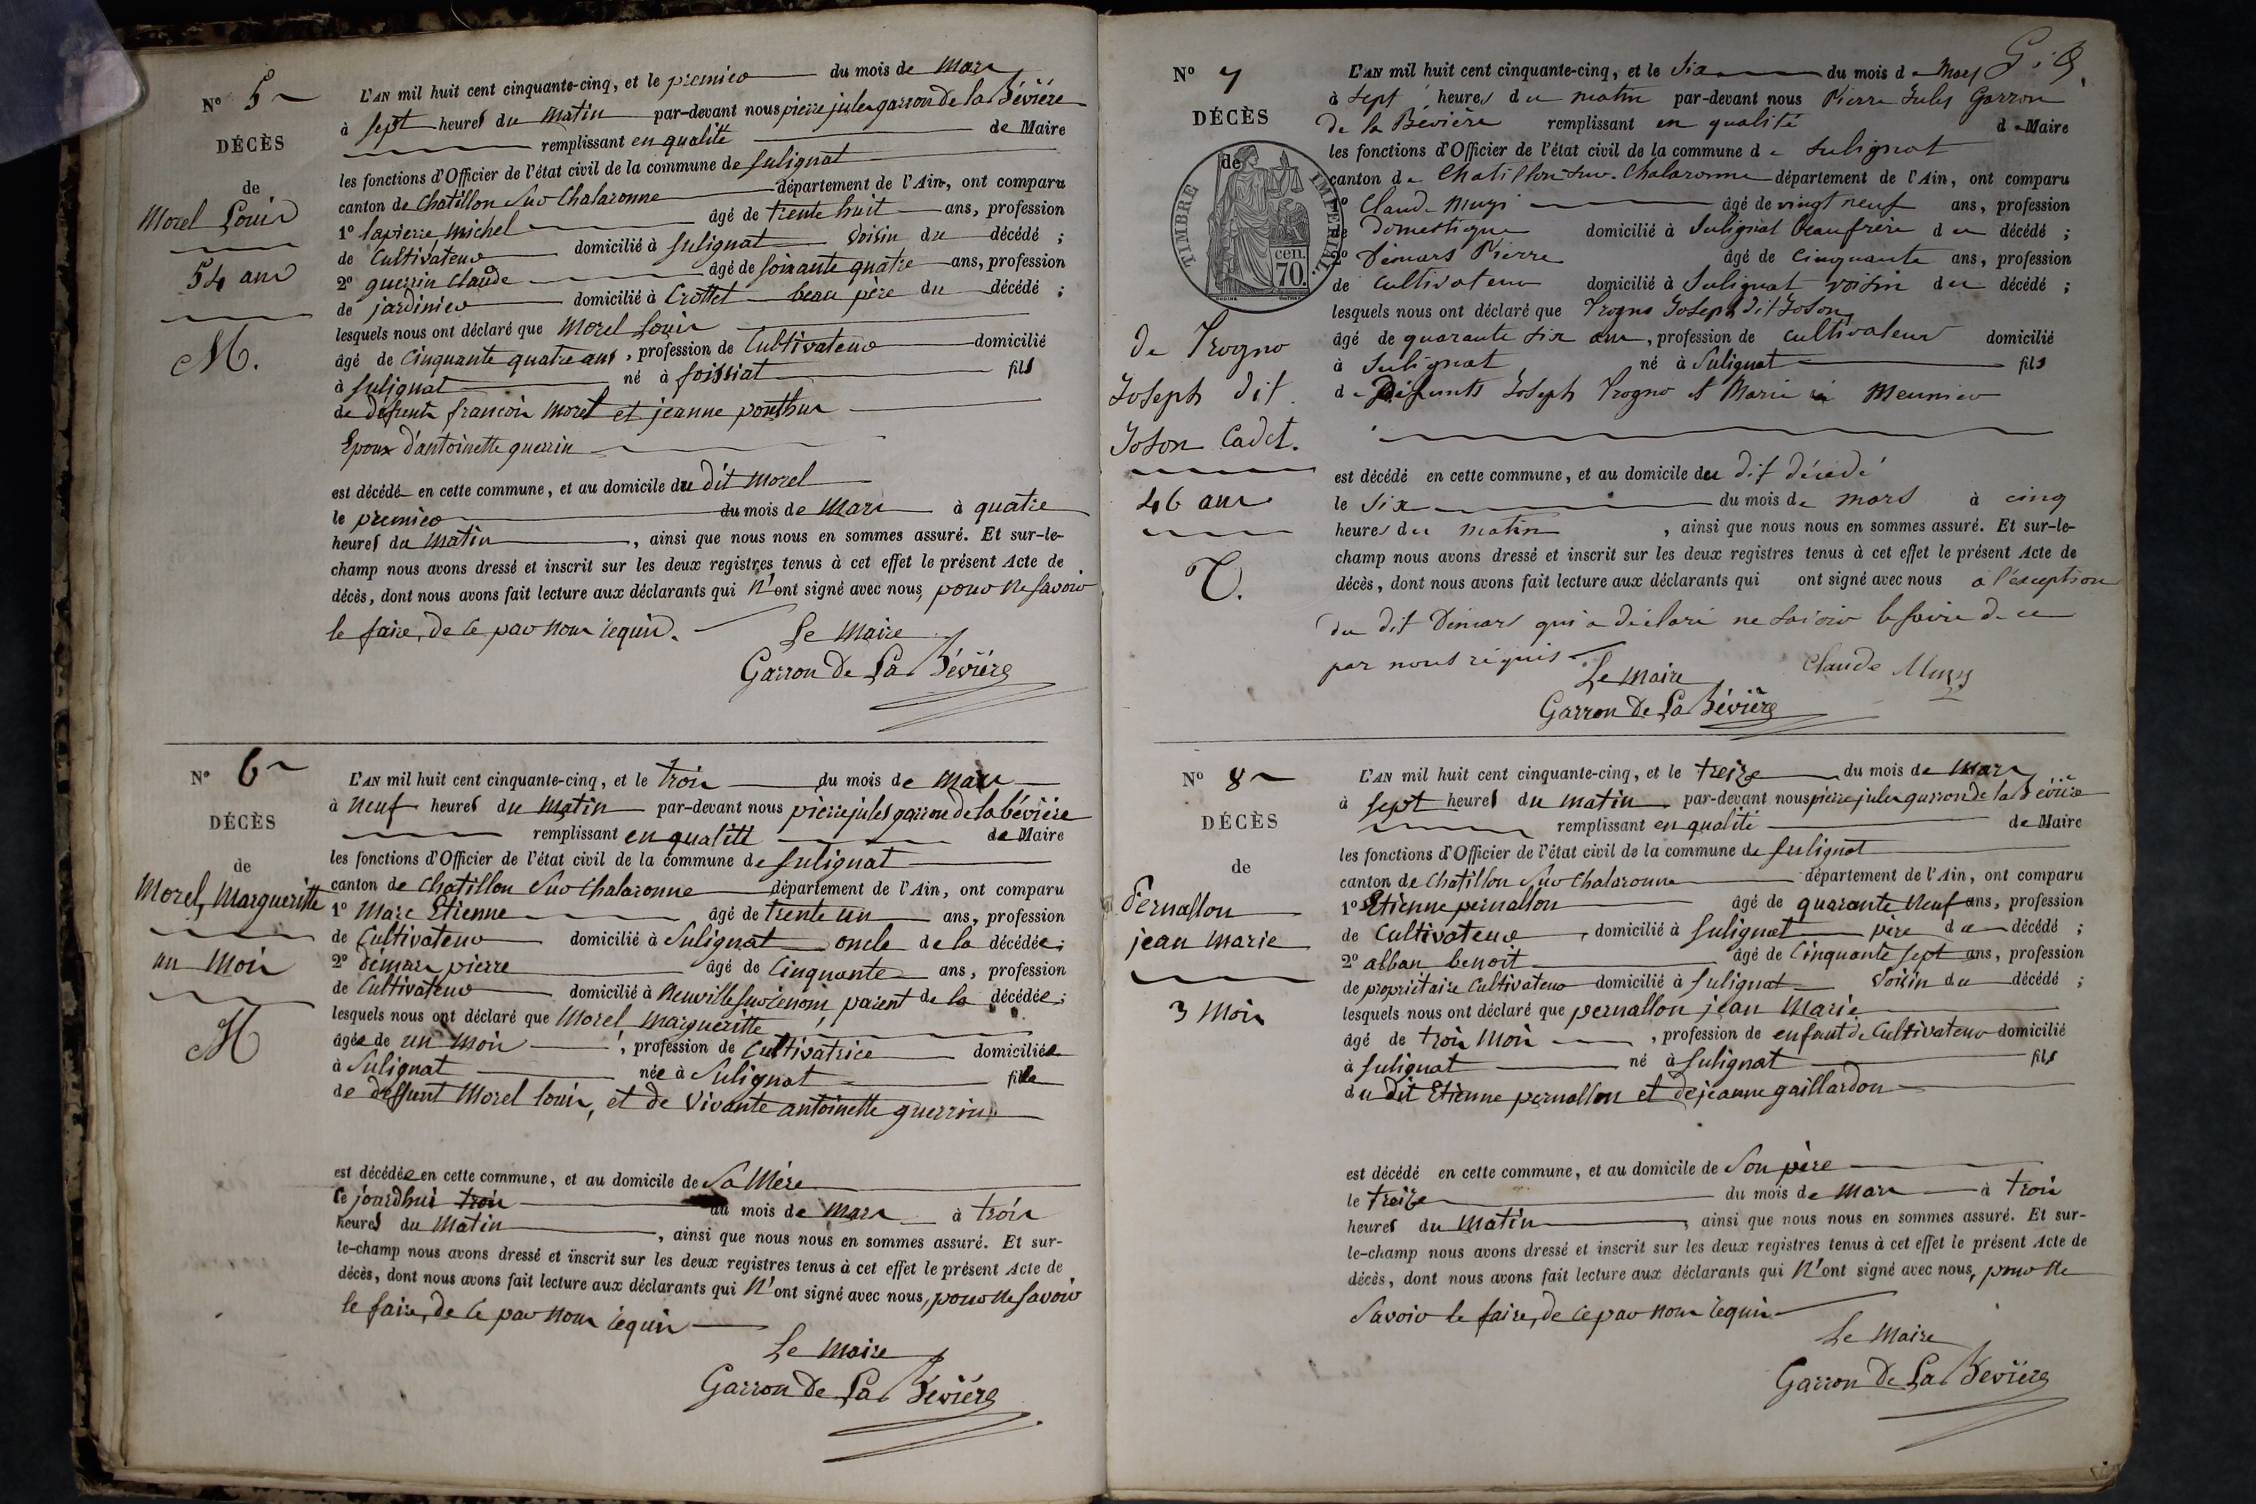 N° 5
DÉCÈS
de
Morel Louis
54 ans
M.
L'AN mil huit cent cinquante-cinq, et le premier du mois de Mars
à sept heures du Matin par-devant nous pierre jules garron de la Bévière
remplissant en qualité de Maire
les fonctions d'Officier de l'état civil de la commune de Sulignat
canton de Chatillon Sur Chalaronne département de l'Ain, ont comparu
1° lapierre Michel âgé de trente huit ans, profession
de Cultivateur domicilié à Sulignat Voisin du décédé ;
2° guerrin Claude âgé de soixante quatre ans, profession
de jardinier domicilié à Crottet beau père du décédé ;
lesquels nous ont déclaré que Morel Louis
âgé de Cinquante quatre ans, profession de Cultivateur domicilié
à Sulignat né à foissiat fils
de défunts francois Morel et jeanne ponthus
Epoux d'antoinette guerrin
est décédé en cette commune, et au domicile du dit Morel
le premier du mois de Mars à quatre
heures du Matin, ainsi que nous nous en sommes assuré. Et sur-le-
champ nous avons dressé et inscrit sur les deux registres tenus à cet effet le présent Acte de
décès, dont nous avons fait lecture aux déclarants qui N'ont signé avec nous, pour ne savoir
le faire, de ce par nous requis.
Le Maire
Garron De La Bévière
N° 6
DÉCÈS
de
Morel, Margueritte
un Mois
M
L'AN mil huit cent cinquante-cinq, et le trois du mois de Mars
à neuf heures du Matin par-devant nous pierre jules garron de la bévière
remplissant en qualité de Maire
les fonctions d'Officier de l'état civil de la commune de Sulignat
canton de Chatillon Sur Chalaronne département de l'Ain, ont comparu
1° Marc Etienne âgé de trente un ans, profession
de Cultivateur domicilié à Sulignat oncle de la décédée;
2° démars pierre âgé de Cinquante ans, profession
de Cultivateur domicilié à Neuville sur renom, parent de la décédée;
lesquels nous ont déclaré que Morel Margueritte
âgée de un Mois, profession de Cultivatrice domiciliée
à Sulignat née à Sulignat fille
de deffunt Morel louis, et de Vivante antoinette guerrin
est décédée en cette commune, et au domicile de Sa Mère
le jourdhui trois du mois de Mars à trois
heures du Matin, ainsi que nous nous en sommes assuré. Et sur-
le-champ nous avons dressé et inscrit sur les deux registres tenus à cet effet le présent Acte de
décès, dont nous avons fait lecture aux déclarants qui N'ont signé avec nous, pour ne savoir
le faire, de ce par nous requis
Le Maire
Garron De La Bévière
N° 7
DÉCÈS
de
TIMBRE IMPÉRIAL
cen.
70.
de Trogno
Joseph dit
Joson Cadet.
46 ans
T.
L'AN mil huit cent cinquante-cinq, et le Six du mois de Mars
à Sept heures du matin par-devant nous Pierre Jules Garron
de la Bévière remplissant en qualité de Maire
les fonctions d'Officier de l'état civil de la commune de Sulignat
canton de Chatillon sur Chalaronne département de l'Ain, ont comparu
1° Claude Muys âgé de vingt neuf ans, profession
de Domestique domicilié à Sulignat beaufrère du décédé ;
2° Démars Pierre âgé de Cinquante ans, profession
de Cultivateur domicilié à Sulignat voisin du décédé ;
lesquels nous ont déclaré que Trogno Joseph dit Joson
âgé de quarante six ans, profession de cultivateur domicilié
à Sulignat né à Sulignat fils
de Défunts Joseph Trogno et Marie Meunier
est décédé en cette commune, et au domicile du dit décédé
le Six du mois de mars à cinq
heures du matin, ainsi que nous nous en sommes assuré. Et sur-le-
champ nous avons dressé et inscrit sur les deux registres tenus à cet effet le présent Acte de
décès, dont nous avons fait lecture aux déclarants qui ont signé avec nous à l'exception
du dit Démars qui a déclaré ne savoir le faire de ce
par nous réquis
Le Maire
Claude Muys
Garron De La Bévière
N° 8
DÉCÈS
de
Pernallon
jean Marie
3 Mois
L'AN mil huit cent cinquante-cinq, et le treize du mois de Mars
à sept heures du Matin par-devant nous pierre jules garron de la Bévière
remplissant en qualité de Maire
les fonctions d'Officier de l'état civil de la commune de Sulignat
canton de Chatillon Sur Chalaronne département de l'Ain, ont comparu
1° Etienne pernallon âgé de quarante Neuf ans, profession
de Cultivateur, domicilié à Sulignat père du décédé ;
2° alban benoit âgé de Cinquante sept ans, profession
de propriétaire Cultivateur domicilié à Sulignat Voisin du décédé ;
lesquels nous ont déclaré que pernallon jean Marie
âgé de trois Mois, profession de enfant de Cultivateur domicilié
à Sulignat né à Sulignat fils
du dit Etienne pernallon et de jeanne gaillardon
est décédé en cette commune, et au domicile de Son père
le treize du mois de Mars à trois
heures du Matin, ainsi que nous nous en sommes assuré. Et sur-
le-champ nous avons dressé et inscrit sur les deux registres tenus à cet effet le présent Acte de
décès, dont nous avons fait lecture aux déclarants qui N'ont signé avec nous, pour Ne
Savoir le faire, de ce par nous requis
Le Maire
Garron De La Bévière